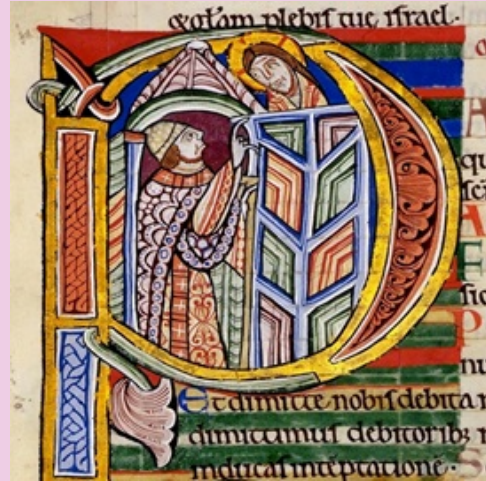 & gl̃am plebis tue israel.
Et dimitte nobis debita n
dimittimus debitoribꝫ n
inducas inteptatione.